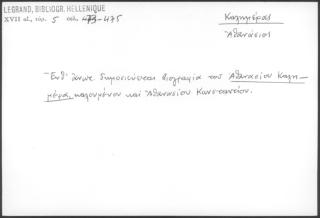 LEGRAND, BIBLIOGR. HELLENIQUE
XVII αἰ., τόμ. 5 σελ. 473-475
Καλημέρας
Ἀθανάσιος
Ἔνθ' ἄνωτ. δημοσιεύεται βιογραφία τοῦ Ἀθανασίου Καλη-
μέρα, καλουμένου καὶ Ἀθανασίου Κωνσταντίου.